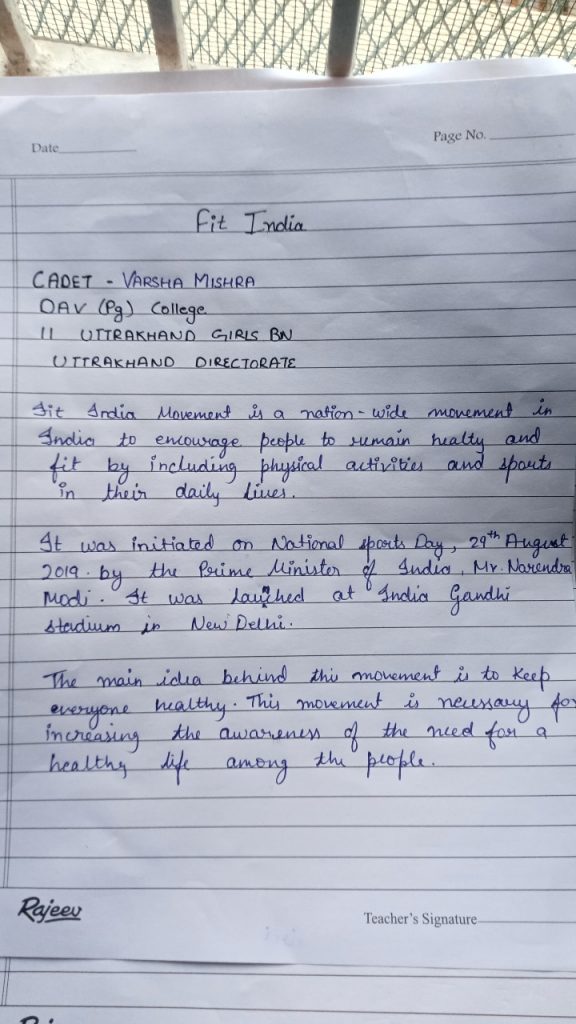 Date
Page No.
Fit India
CADET - VARSHA MISHRA
DAV (Pg) College
11 UTTRAKHAND GIRLS BN
UTTRAKHAND DIRECTORATE
Fit India Movement is a nation-wide movement in
India to encourage people to remain healty and
fit by including physical activities and sports
in their daily lives.
It was initiated on National sports Day, 29th August
2019. by the Prime Minister of India, Mr. Narendra
Modi. It was at India Gandhi
stadium in New Delhi.
The main idea behind this movement is to keep
everyone healthy. This movement is necessary for
increasing the awareness of the need for a
healthy life among the people.
Rajeev
Teacher's Signature